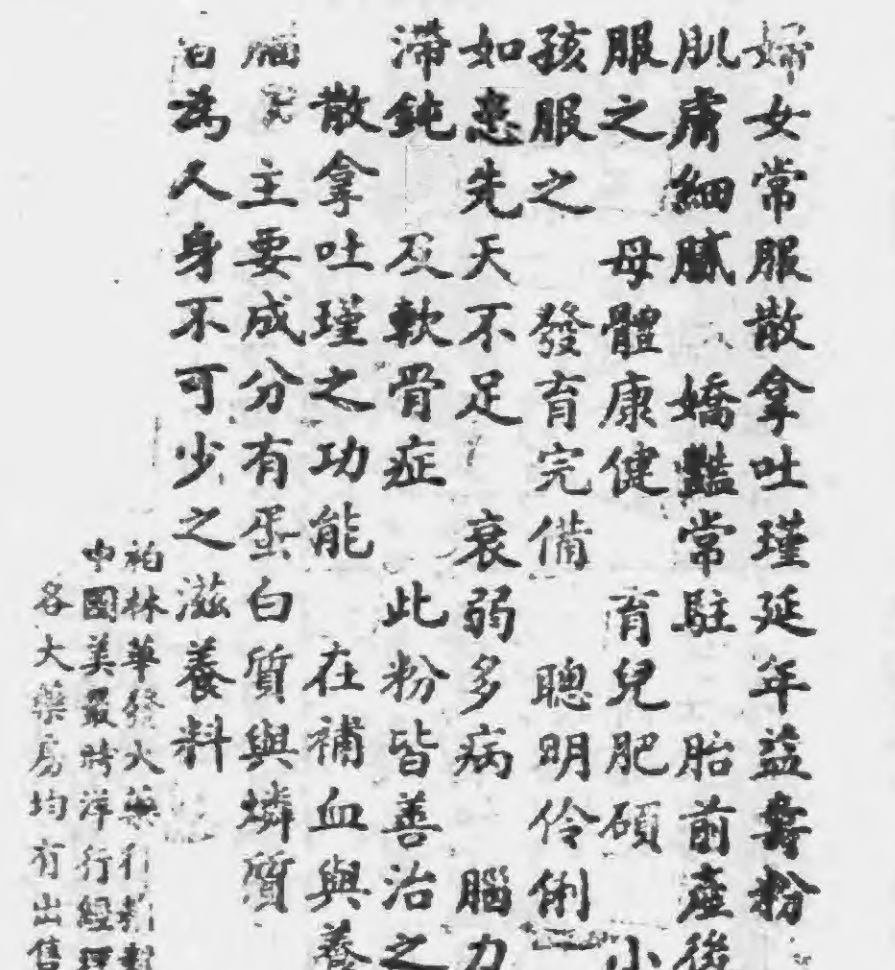 婦女常服散拿吐瑾延年益壽粉
肌膚細膩 嬌豔常駐 胎前產後
服之 母體康健 育兒肥碩 小
孩服之 發育完備 聰明伶俐
如患先天不足 衰弱多病 腦力
滯鈍 及軟骨症 此粉皆善治之
散拿吐瑾之功能 在補血與養
腦 其主要成分有蛋白質與燐質
為人身不可少之滋養料
柏林華發大藥行
中國美最時洋行經理
各大藥房均有出售